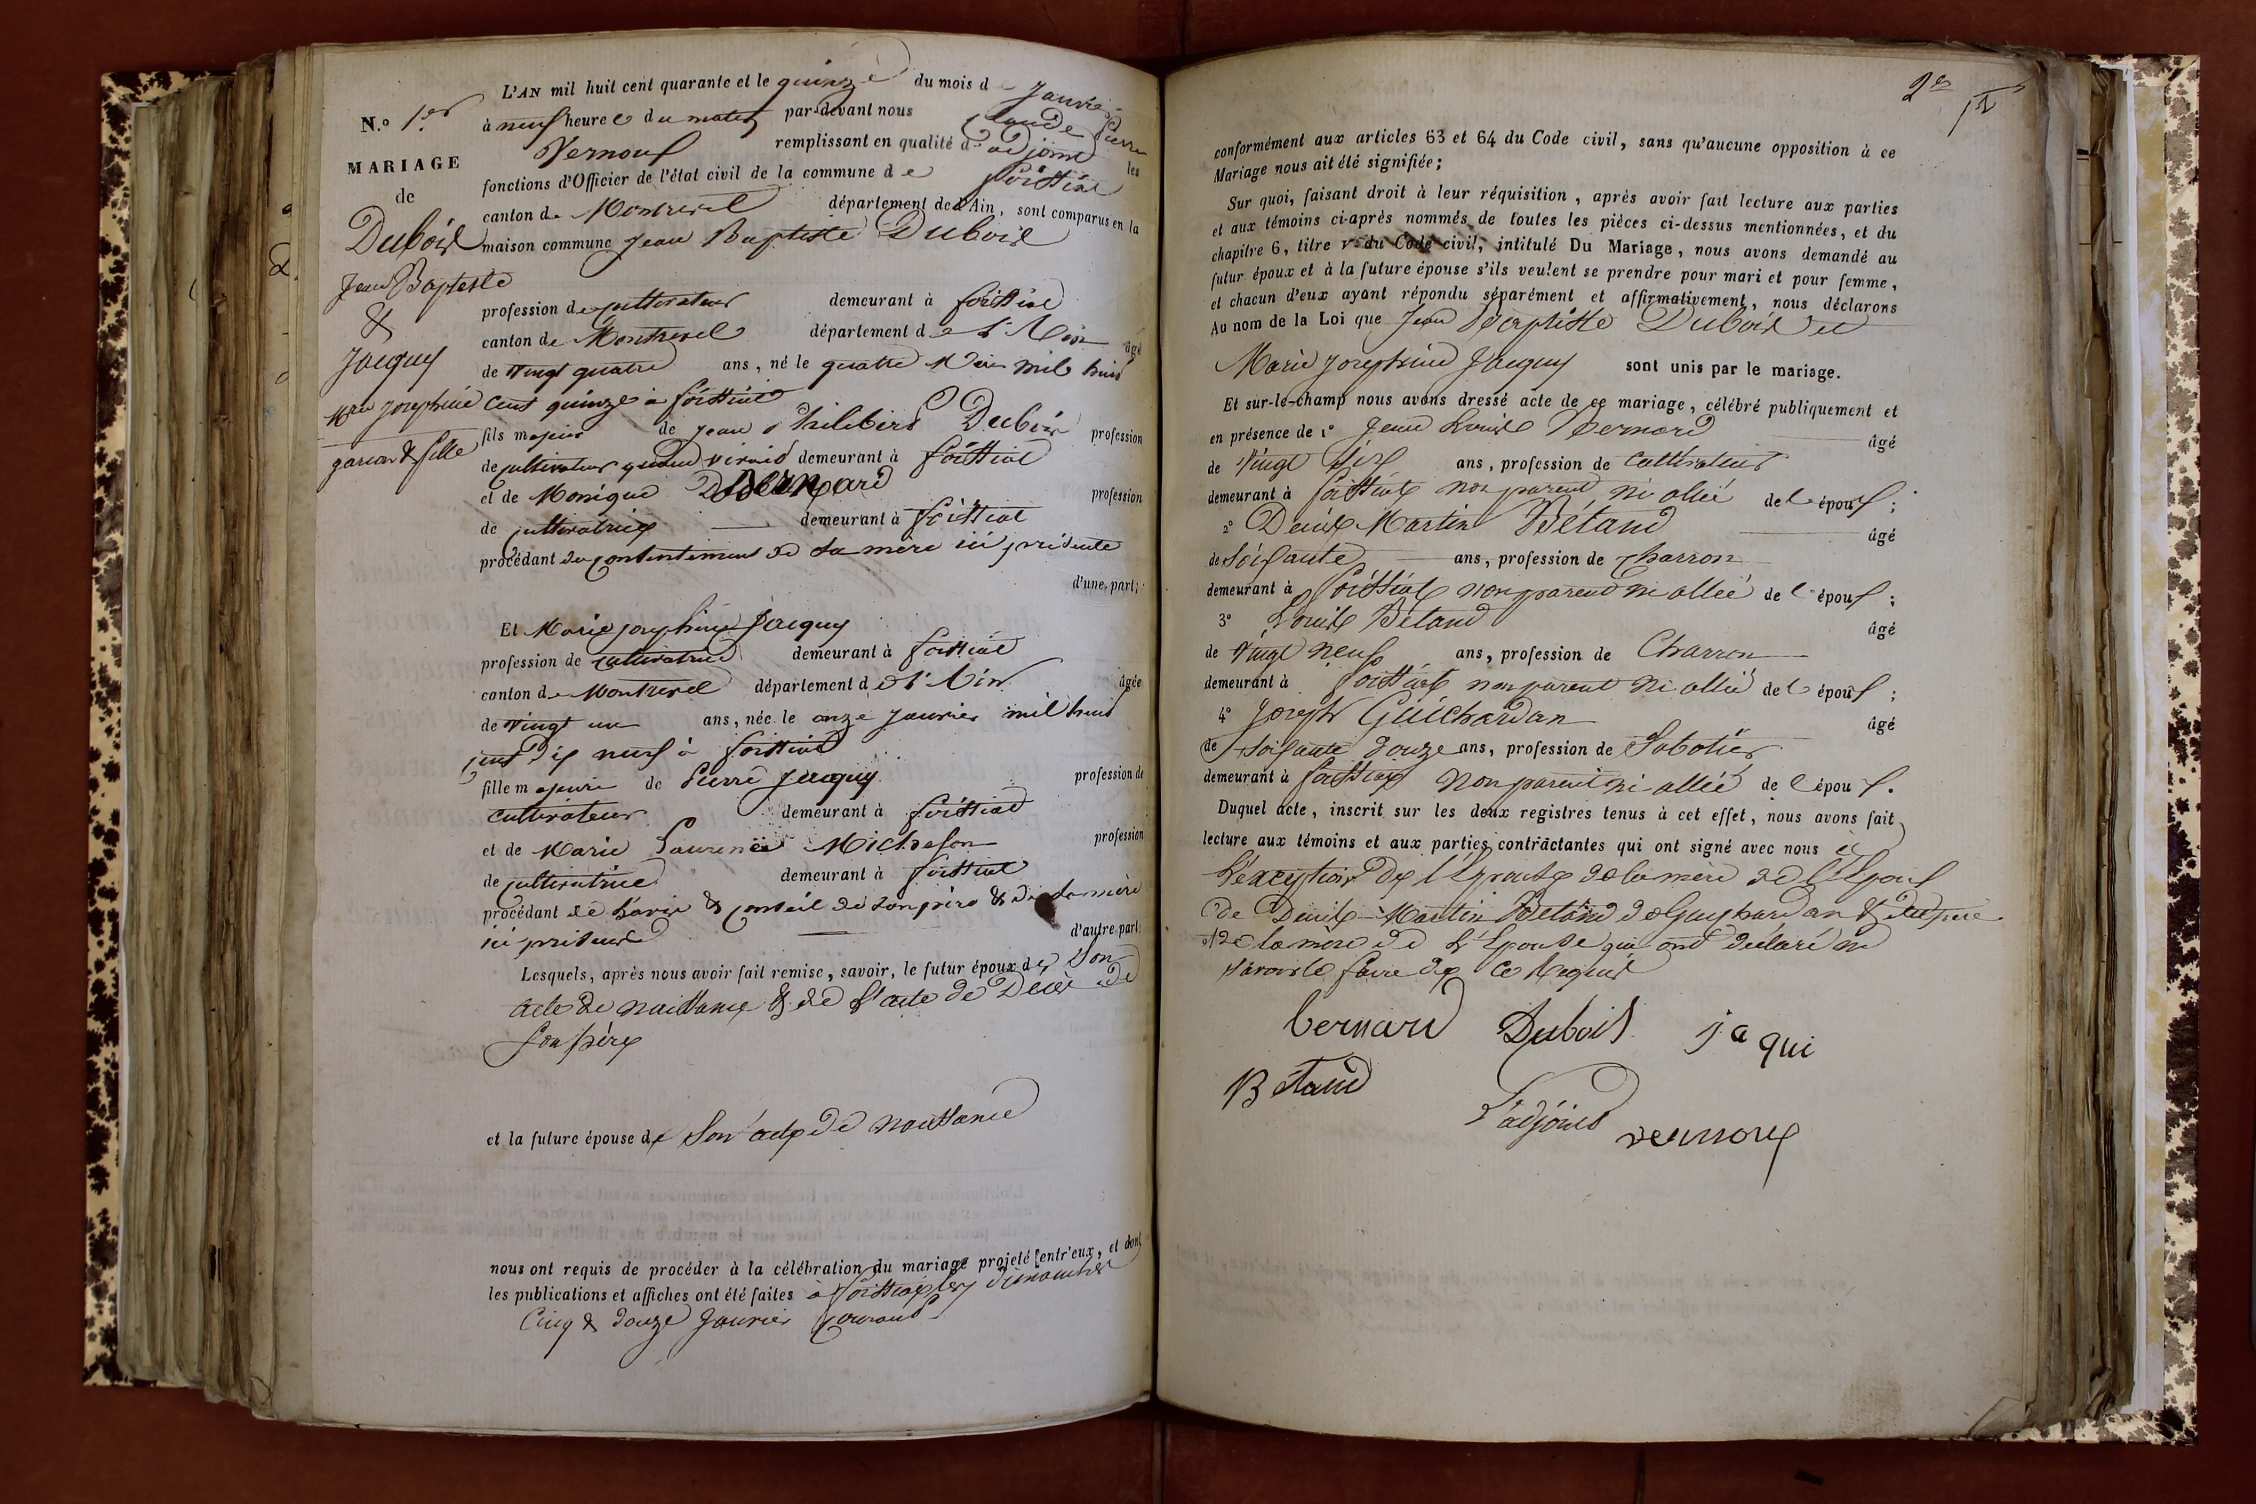 L'AN mil huit cent quarante et le quinze du mois de Janvier
N.º 1er
à neuf heures du matin par-devant nous Claude Pierre
Vernoux remplissant en qualité d'adjoint les
MARIAGE
fonctions d'Officier de l'état civil de la commune de foissiat
de
canton de Montrevel département de l'Ain, sont comparus en la
Dubois
maison commune Jean Baptiste Dubois
Jean Baptiste
profession de cultivateur demeurant à foissiat
&
canton de Montrevel département de l'Ain âgé
Jacquy
de vingt quatre ans, né le quatre mil huit
Mie Josephine
cent quinze à foissiat
garçon & fille
fils majeur de jean Philibert Dubois profession
de cultivateur quand vivait demeurant à foissiat
et de Monique Bernard profession
de cultivatrice demeurant à foissiat
procédant du consentement de sa mère ici présente
d'une part;
Et Marie josephine Jacquy
profession de cultivatrice demeurant à foissiat
canton de Montrevel département de l'Ain âgée
de vingt un ans, née le onze janvier mil huit
cent dix neuf à foissiat
fille majeure de Pierre Jacquy profession de
cultivateur demeurant à foissiat
et de Marie Laurence Michelon profession
de cultivatrice demeurant à foissiat
procédant de l'avis & conseil de son père & de sa mère
ici présents d'autre part.
Lesquels, après nous avoir fait remise, savoir, le futur époux de son
acte de naissance & de l'acte de Décès de
son père
et la future épouse de son acte de naissance
nous ont requis de procéder à la célébration du mariage projeté entr'eux, et dont
les publications et affiches ont été faites à foissiat les dimanches
cinq & douze Janvier courant
2e
conformément aux articles 63 et 64 du Code civil, sans qu'aucune opposition à ce
Mariage nous ait été signifiée;
Sur quoi, faisant droit à leur réquisition, après avoir fait lecture aux parties
et aux témoins ci-après nommés de toutes les pièces ci-dessus mentionnées, et du
chapitre 6, titre v du Code civil, intitulé Du Mariage, nous avons demandé au
futur époux et à la future épouse s'ils veulent se prendre pour mari et pour femme,
et chacun d'eux ayant répondu séparément et affirmativement, nous déclarons
Au nom de la Loi que Jean Baptiste Dubois et
Marie Josephine Jacquy sont unis par le mariage.
Et sur-le-champ nous avons dressé acte de ce mariage, célébré publiquement et
en présence de 1º Jean Louis Bernard âgé
de vingt six ans, profession de cultivateur
demeurant à foissiat non parent ni allié de l'époux;
2º Denis Martin Bétand âgé
de soixante ans, profession de charron
demeurant à foissiat non parent ni allié de l'époux;
3º Louis Bétand âgé
de vingt neuf ans, profession de Charron
demeurant à foissiat non parent ni allié de l'époux;
4º Joseph Guichardan âgé
de soixante douze ans, profession de Sabotier
demeurant à foissiat non parent ni allié de l'époux.
Duquel acte, inscrit sur les deux registres tenus à cet effet, nous avons fait
lecture aux témoins et aux parties contractantes qui ont signé avec nous à
l'exception de l'Epouse de la mère de l'Epoux
de Denis Martin Bétand de Guichardan & du père
& de la mère de l'Epouse qui ont déclaré ne
savoir le faire de ce Requis
bernard Dubois jaqui
Bétand
L'adjoint vernoux